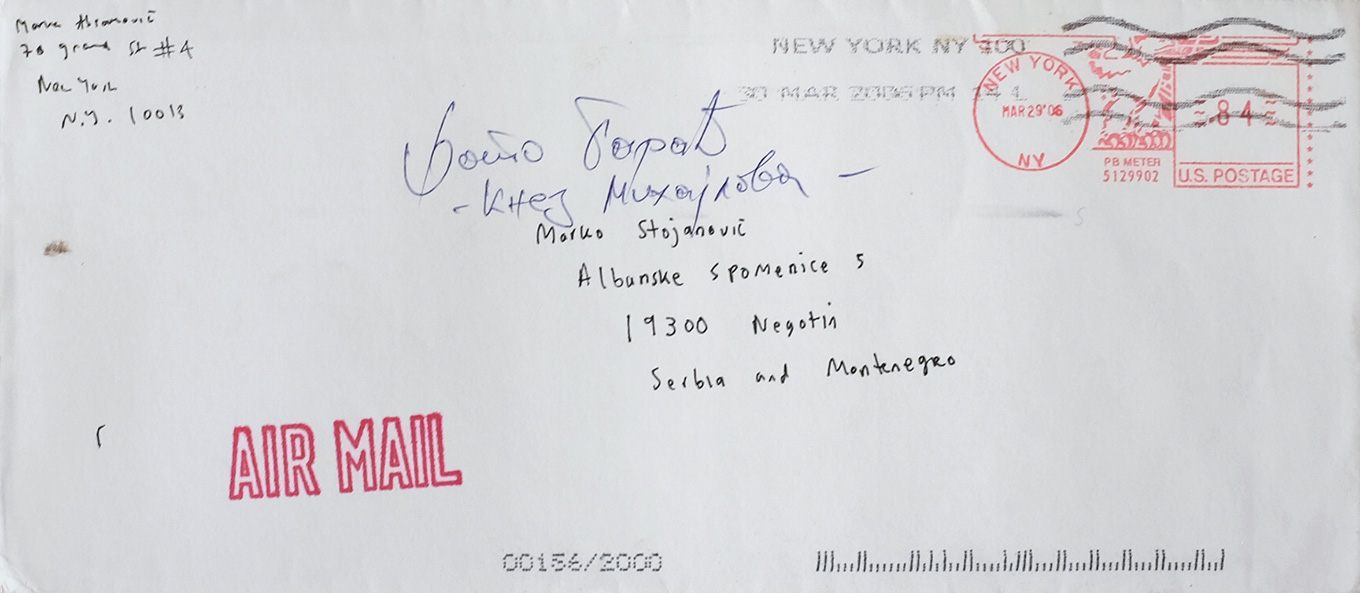 Abramović
70 grand St #4
New York
N.Y. 10013
NEW YORK NY 100
30 MAR 2006 PM 14 L
NEW YORK
MAR 29 '06
NY
PB METER
5129902
84
U.S. POSTAGE
Фото Борат
- Кнез Михајлова -
Marko Stojanović
Albanske Spomenice 5
19300 Negotin
Serbia and Montenegro
AIR MAIL
00156/2000